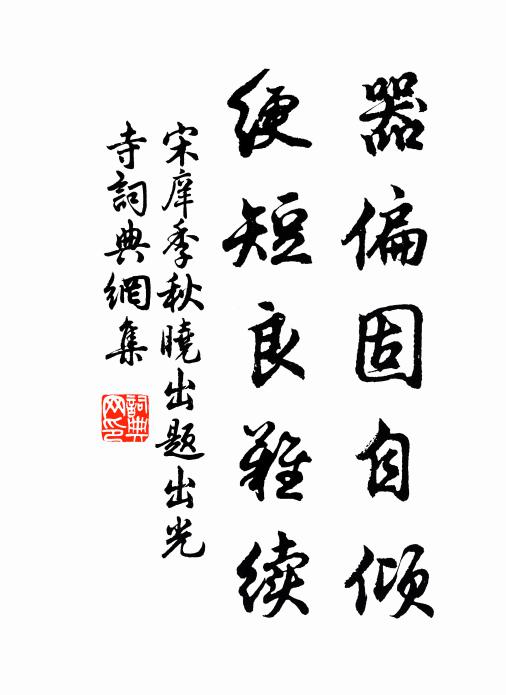 器偏固自倾
绠短良难续
宋庠季秋晓出题出光
寺詞典網集
詞典
网印